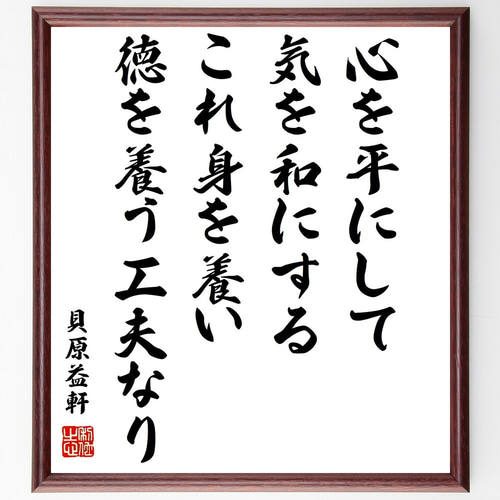 心を平にして
気を和にする
これ身を養い
徳を養う工夫なり
貝原益軒